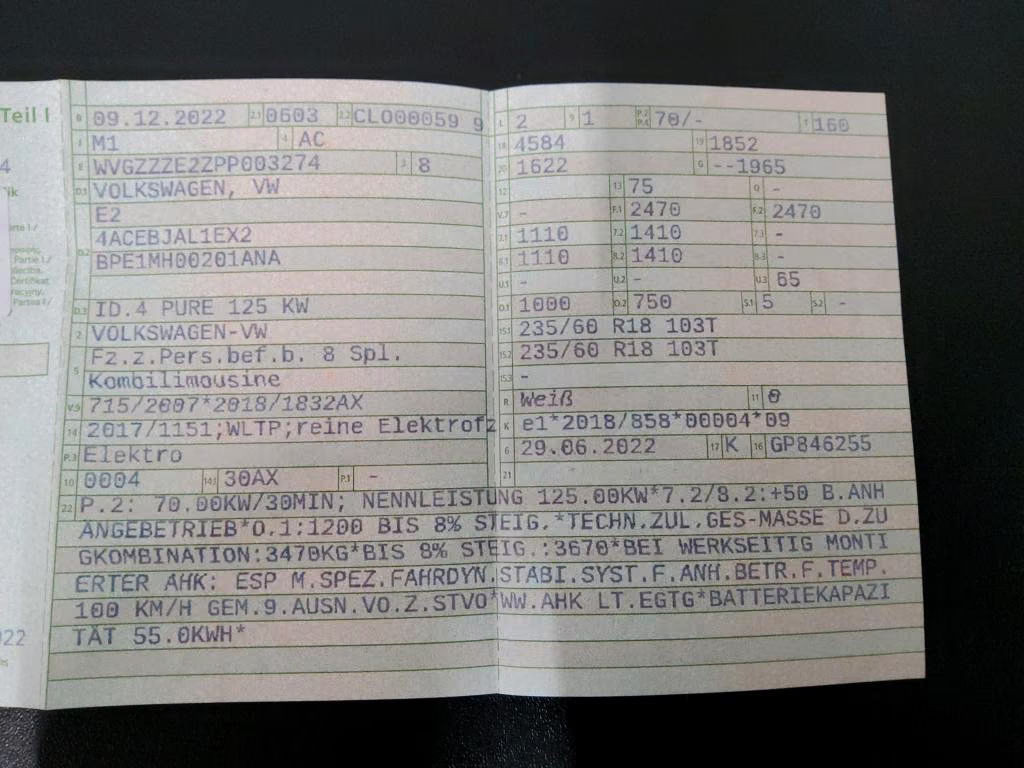 Teil I
B 09.12.2022 2.1 0603 2.2 CLO00059 9
J M1 4 AC
E WVGZZZE2ZPP003274 3 8
D.1 VOLKSWAGEN, VW
E2
4ACEBJAL1EX2
D.2 BPE1MH00201ANA
D.3 ID.4 PURE 125 KW
2 VOLKSWAGEN-VW
5 Fz.z.Pers.bef.b. 8 Spl.
Kombilimousine
V.9 715/2007*2018/1832AX
14 2017/1151;WLTP;reine Elektrofz
P.3 Elektro
10 0004 14.1 30AX P.1 -
L 2 9 1 P.2 P.4 70/- T 160
18 4584 19 1852
20 1622 G --1965
12 13 75 Q -
V.7 - F.1 2470 F.2 2470
7.1 1110 7.2 1410 7.3 -
8.1 1110 8.2 1410 8.3 -
U.1 - U.2 - U.3 65
O.1 1000 O.2 750 S.1 5 S.2 -
15.1 235/60 R18 103T
15.2 235/60 R18 103T
15.3 -
R Weiß 11 0
K e1*2018/858*00004*09
6 29.06.2022 17 K 16 GP846255
21
22 P.2: 70.00KW/30MIN; NENNLEISTUNG 125.00KW*7.2/8.2:+50 B.ANH
ANGEBETRIEB*O.1:1200 BIS 8% STEIG.*TECHN.ZUL.GES-MASSE D.ZU
GKOMBINATION:3470KG*BIS 8% STEIG.:3670*BEI WERKSEITIG MONTI
ERTER AHK: ESP M.SPEZ.FAHRDYN.STABI.SYST.F.ANH.BETR.F.TEMP.
100 KM/H GEM.9.AUSN.VO.Z.STVO*WW.AHK LT.EGTG*BATTERIEKAPAZI
TÄT 55.0KWH*